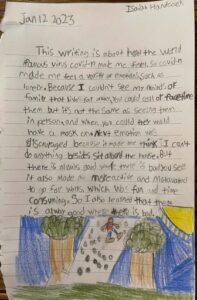 Isaias Handcock
Jan 12 2023
This writing is about how the weird
virus covid-n made me feel. So covid-n
made me feel a worth of emotions such as
longely. Because I couldn't see my friends or
family that didn't live away. You could call or facetime
them but it's not the same as seeing them
in person, and when you could they would
have a mask on. Next emotion was
discouraged because it made me think I can't
do anything besides sit around the house. But
there is always good when there is bad and
it also made me more active and motivated
to go for walks which was fun and time
consuming. So I also learned that there
is alway good when there is bad.